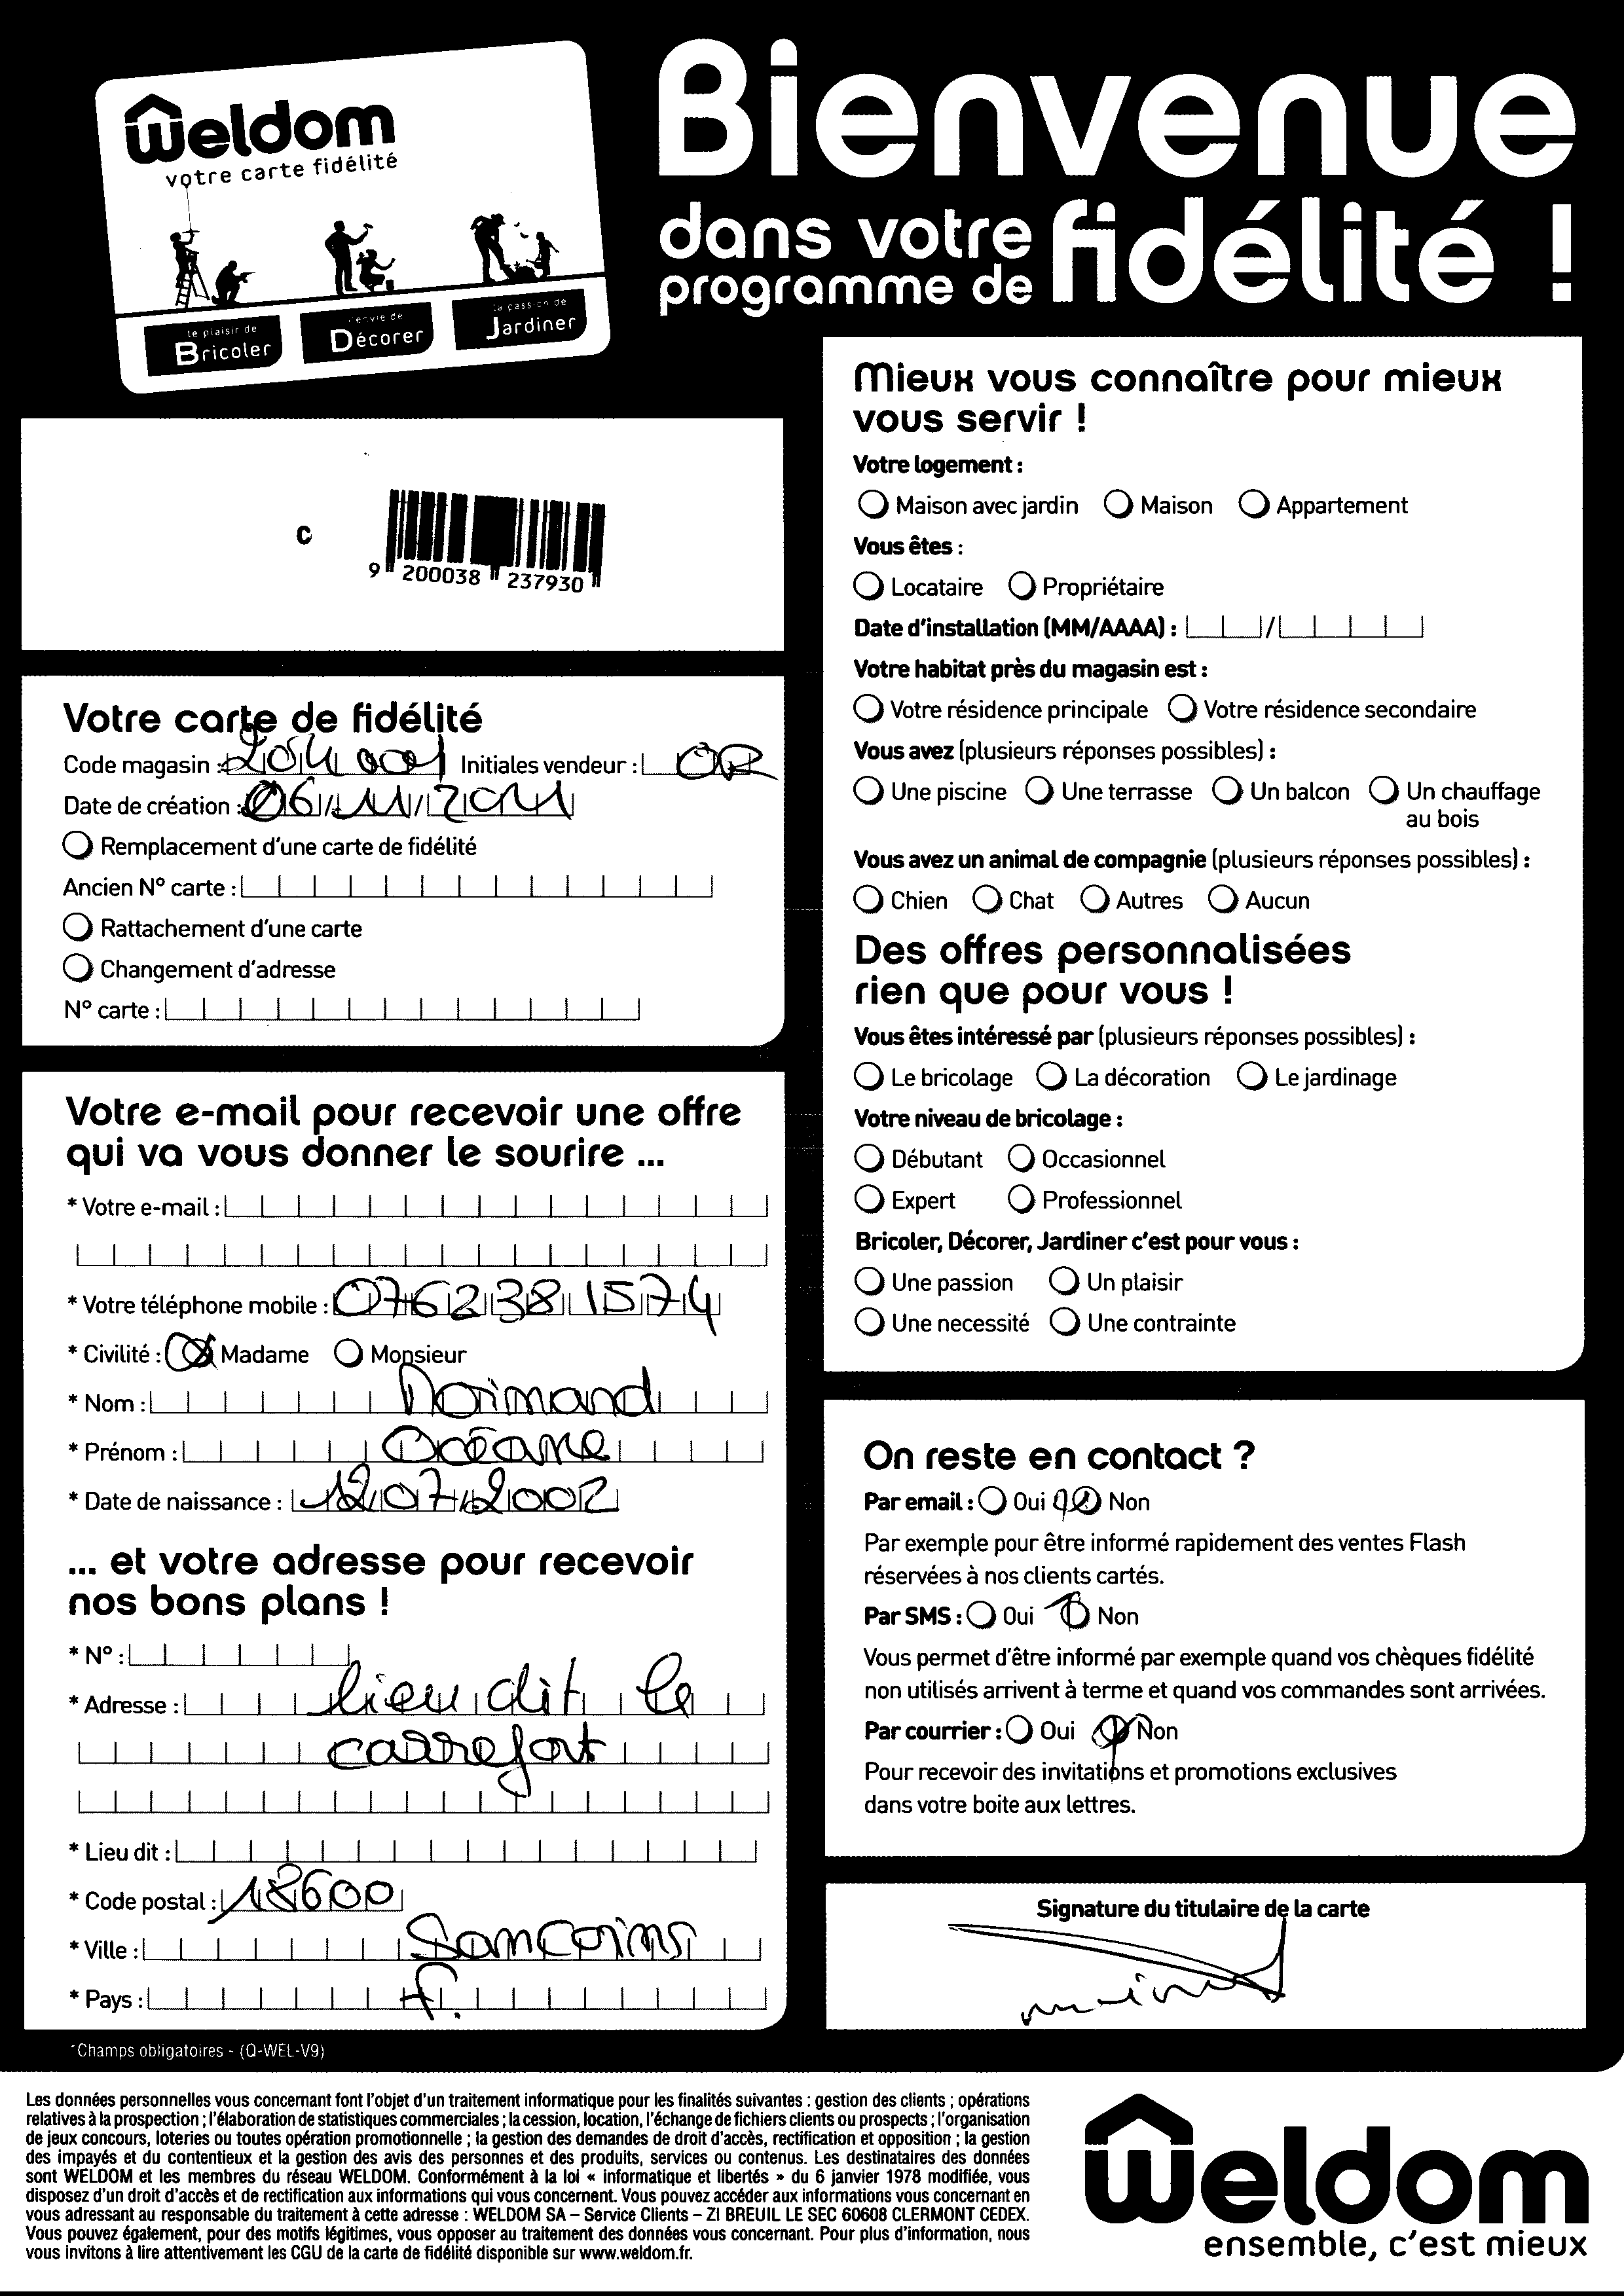 Weldom
votre carte fidélité
le plaisir de
Bricoler
l'envie de
Décorer
la passion de
Jardiner
Bienvenue
dans votre
programme de fidélité !
C
9 200038 237930
Votre carte de fidélité
Code magasin : 204 001 Initiales vendeur : OR
Date de création : 06/11/2011
Remplacement d'une carte de fidélité
Ancien N° carte :
Rattachement d'une carte
Changement d'adresse
N° carte :
Votre e-mail pour recevoir une offre
qui va vous donner le sourire ...
* Votre e-mail :
* Votre téléphone mobile : 0762381574
* Civilité : Madame Monsieur
* Nom : Normand
* Prénom : Océane
* Date de naissance : 12/07/2002
... et votre adresse pour recevoir
nos bons plans !
* N° :
* Adresse : lieu dit le
carrefort
* Lieu dit :
* Code postal : 18600
* Ville : Sancoins
* Pays : f.
*Champs obligatoires - (Q-WEL-V9)
Mieux vous connaître pour mieux
vous servir !
Votre logement :
Maison avec jardin Maison Appartement
Vous êtes :
Locataire Propriétaire
Date d'installation (MM/AAAA) : /
Votre habitat près du magasin est :
Votre résidence principale Votre résidence secondaire
Vous avez (plusieurs réponses possibles) :
Une piscine Une terrasse Un balcon Un chauffage
au bois
Vous avez un animal de compagnie (plusieurs réponses possibles) :
Chien Chat Autres Aucun
Des offres personnalisées
rien que pour vous !
Vous êtes intéressé par (plusieurs réponses possibles) :
Le bricolage La décoration Le jardinage
Votre niveau de bricolage :
Débutant Occasionnel
Expert Professionnel
Bricoler, Décorer, Jardiner c'est pour vous :
Une passion Un plaisir
Une necessité Une contrainte
On reste en contact ?
Par email : Oui Non
Par exemple pour être informé rapidement des ventes Flash
réservées à nos clients cartés.
Par SMS : Oui Non
Vous permet d'être informé par exemple quand vos chèques fidélité
non utilisés arrivent à terme et quand vos commandes sont arrivées.
Par courrier : Oui Non
Pour recevoir des invitations et promotions exclusives
dans votre boite aux lettres.
Signature du titulaire de la carte
Les données personnelles vous concernant font l'objet d'un traitement informatique pour les finalités suivantes : gestion des clients ; opérations
relatives à la prospection ; l'élaboration de statistiques commerciales ; la cession, location, l'échange de fichiers clients ou prospects ; l'organisation
de jeux concours, loteries ou toutes opération promotionnelle ; la gestion des demandes de droit d'accès, rectification et opposition ; la gestion
des impayés et du contentieux et la gestion des avis des personnes et des produits, services ou contenus. Les destinataires des données
sont WELDOM et les membres du réseau WELDOM. Conformément à la loi « informatique et libertés » du 6 janvier 1978 modifiée, vous
disposez d'un droit d'accès et de rectification aux informations qui vous concernent. Vous pouvez accéder aux informations vous concernant en
vous adressant au responsable du traitement à cette adresse : WELDOM SA – Service Clients – ZI BREUIL LE SEC 60608 CLERMONT CEDEX.
Vous pouvez également, pour des motifs légitimes, vous opposer au traitement des données vous concernant. Pour plus d'information, nous
vous invitons à lire attentivement les CGU de la carte de fidélité disponible sur www.weldom.fr.
Weldom
ensemble, c'est mieux